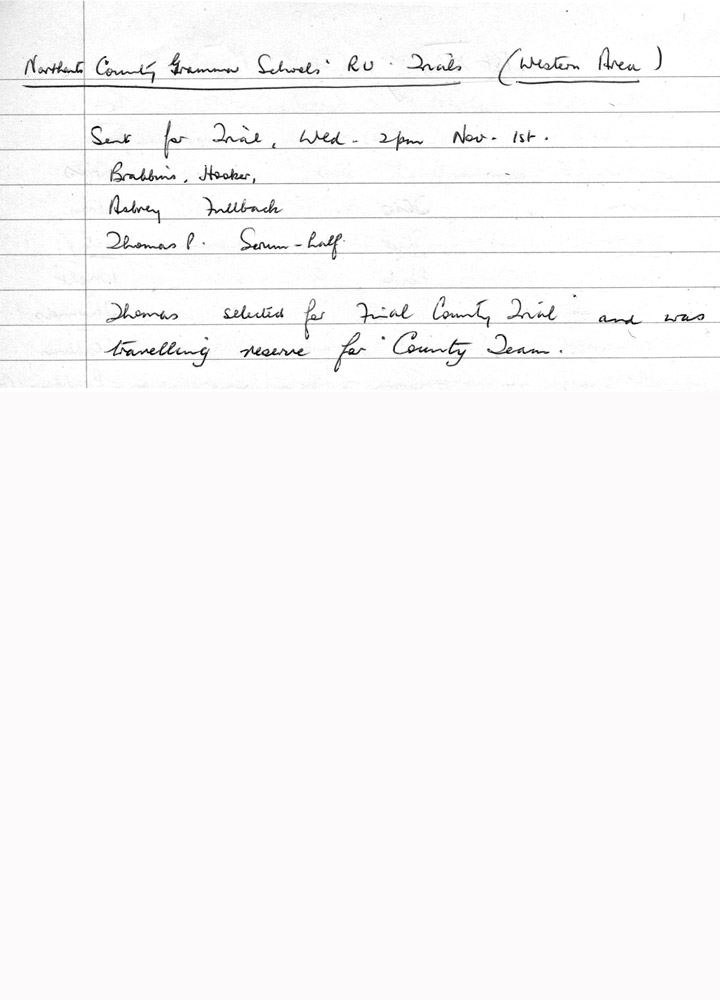 Northants County Grammar Schools' RU. Trials (Western Area)
Sent for Trial, Wed. 2pm Nov. 1st.
Brabbins, Hooker,
Fullback
Thomas P. Scrum-half.
Thomas selected for Final County Trial and was
travelling reserve for County Team.